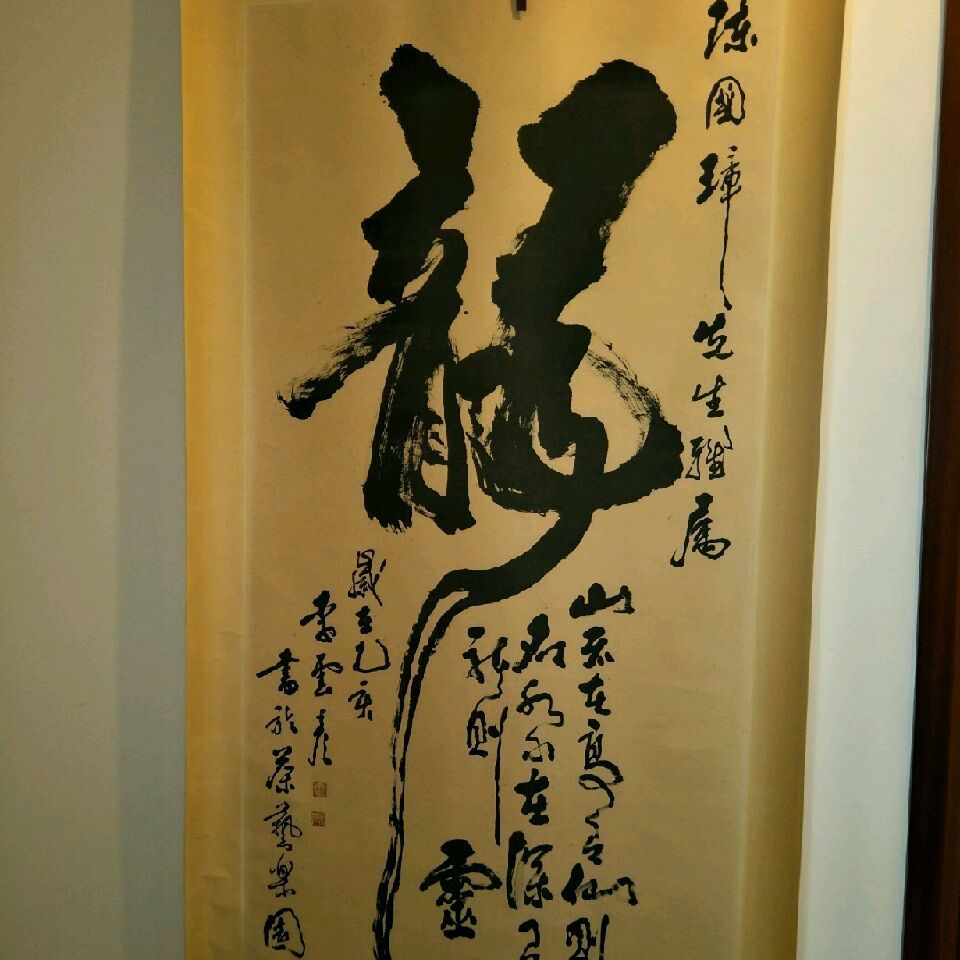 陳國璋先生雅屬
龍
山不在高有仙則
名水不在深有
龍則
靈
歲在乙亥
李雲彦
書於茶藝樂園